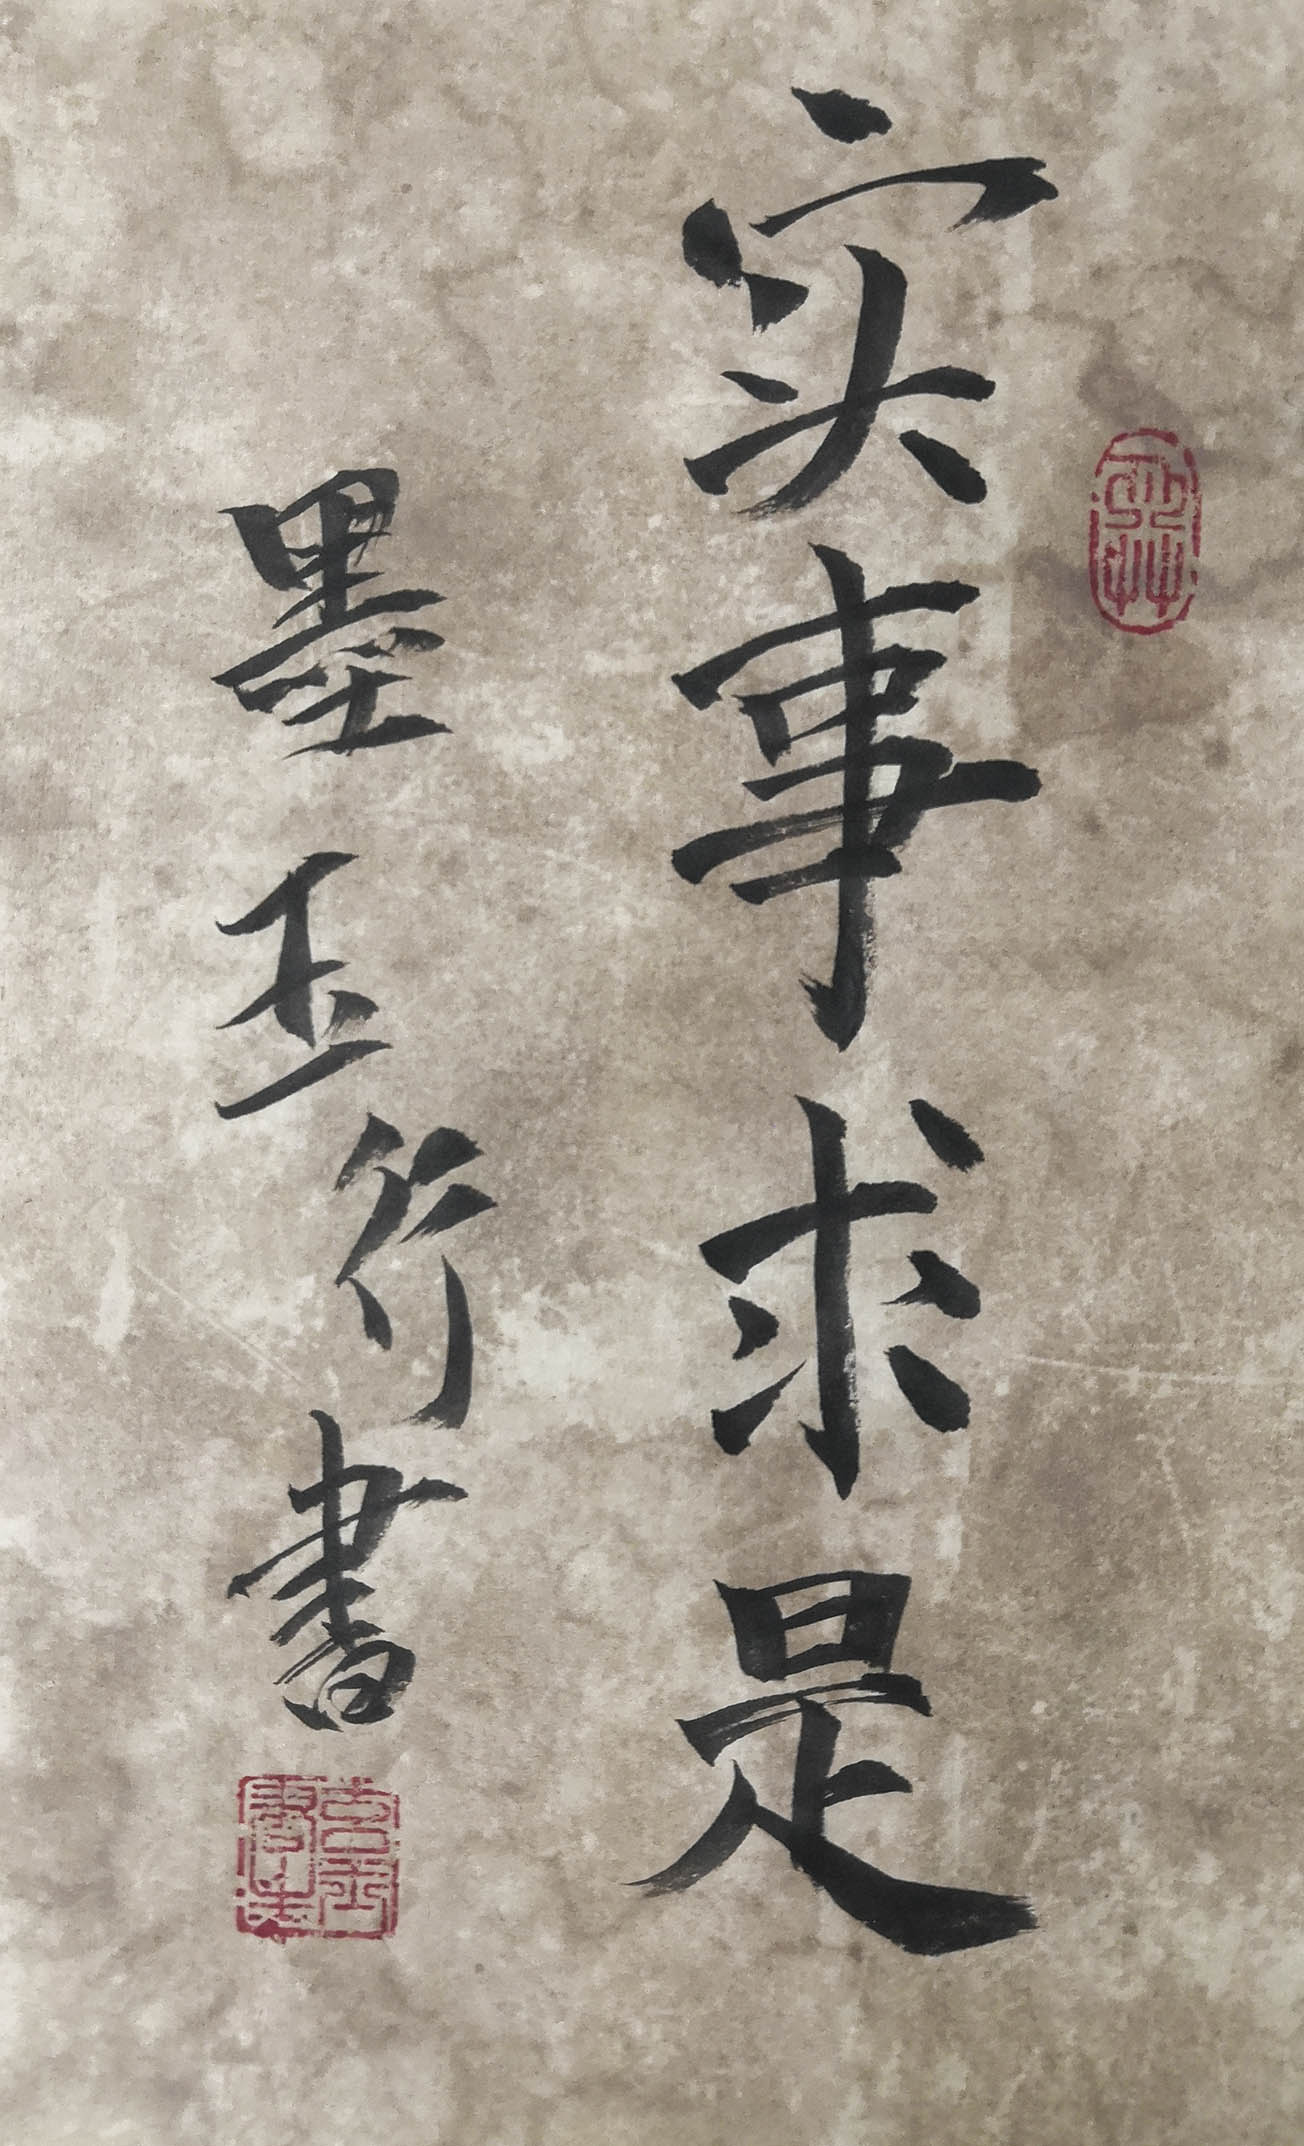 实事求是
墨玉竹書